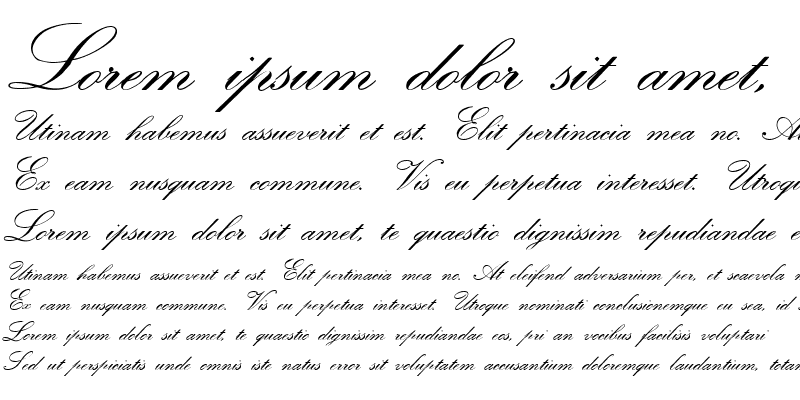 Lorem ipsum dolor sit amet,
Utinam habemus assueverit et est. Elit pertinacia mea no. At
Ex eam nusquam commune. Vis eu perpetua interesset. Utroqu
Lorem ipsum dolor sit amet, te quaestio dignissim repudiandae e
Utinam habemus assueverit et est. Elit pertinacia mea no. At eleifend adversarium per, et scaevola
Ex eam nusquam commune. Vis eu perpetua interesset. Utroque nominati conclusionemque eu sea, id
Lorem ipsum dolor sit amet, te quaestio dignissim repudiandae eos, pri an vocibus facilisis voluptari
Sed ut perspiciatis unde omnis iste natus error sit voluptatem accusantium doloremque laudantium, totam